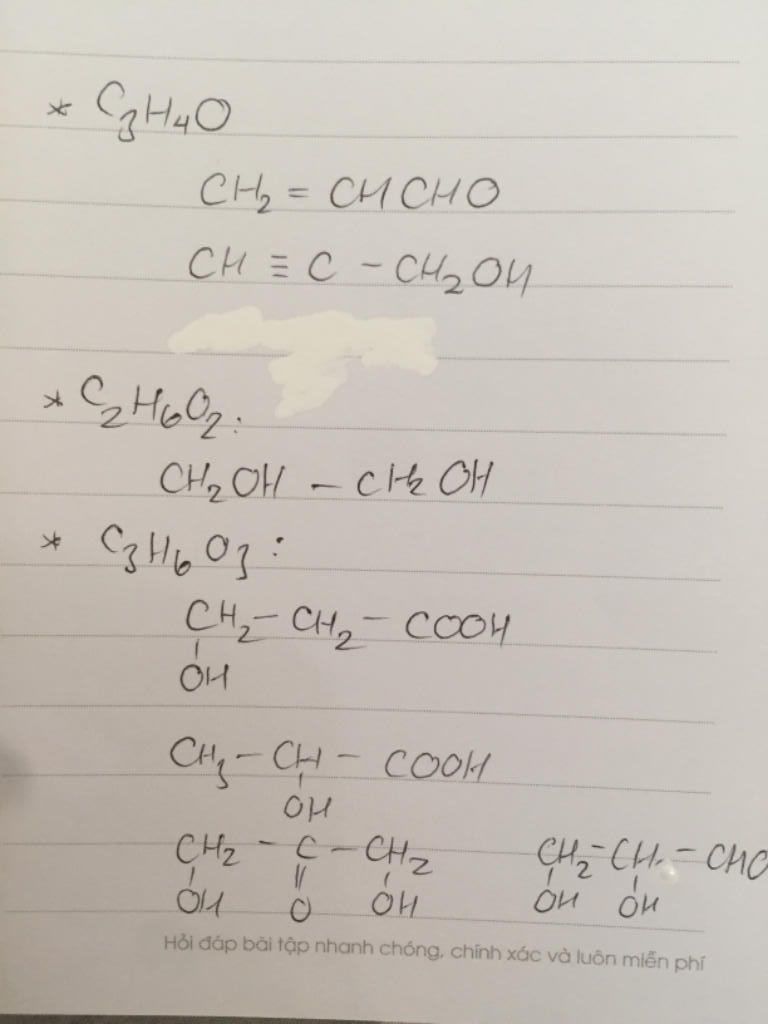 * C₃H₄O
CH₂ = CHCHO
CH ≡ C - CH₂OH
* C₂H₆O₂:
CH₂OH - CH₂OH
* C₃H₆O₃:
CH₂ - CH₂ - COOH
OH
CH₃ - CH - COOH
OH
CH₂ - C - CH₂ CH₂ - CH - CHO
OH O OH OH OH
Hỏi đáp bài tập nhanh chóng, chính xác và luôn miễn phí